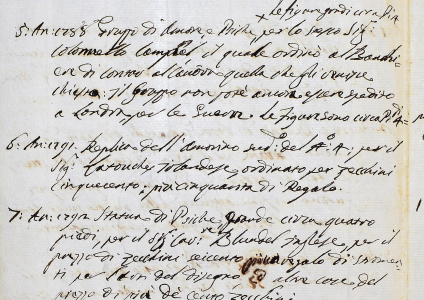 × le figure grandi circa P.di 4
5: An: 1788 Gruppo di Amore e Psiche, per lo stesso Sig.r
Colonnello Campbel il quale ordinò al
di Canova quella che gli
il Gruppo non potè ancora essere spedito
a Londra, per le Guerre. Le figure sono circa P.di 4
6: An: 1791. Replica dell'Amorino sud.o del N.o 4, per il
Sig.r Latouche Irlandese, ordinato per zecchini
cinquecento, più cinquanta di Regalo.
7: An: 1792 Statua di Psiche, grande circa quattro
piedi, per il Sig.r Cav.re Blundel Inglese, per il
prezzo di zecchini seicento, più regalo di stromen=
ti per l'uso del disegno, e altre cose del
prezzo di più di cento zecchini